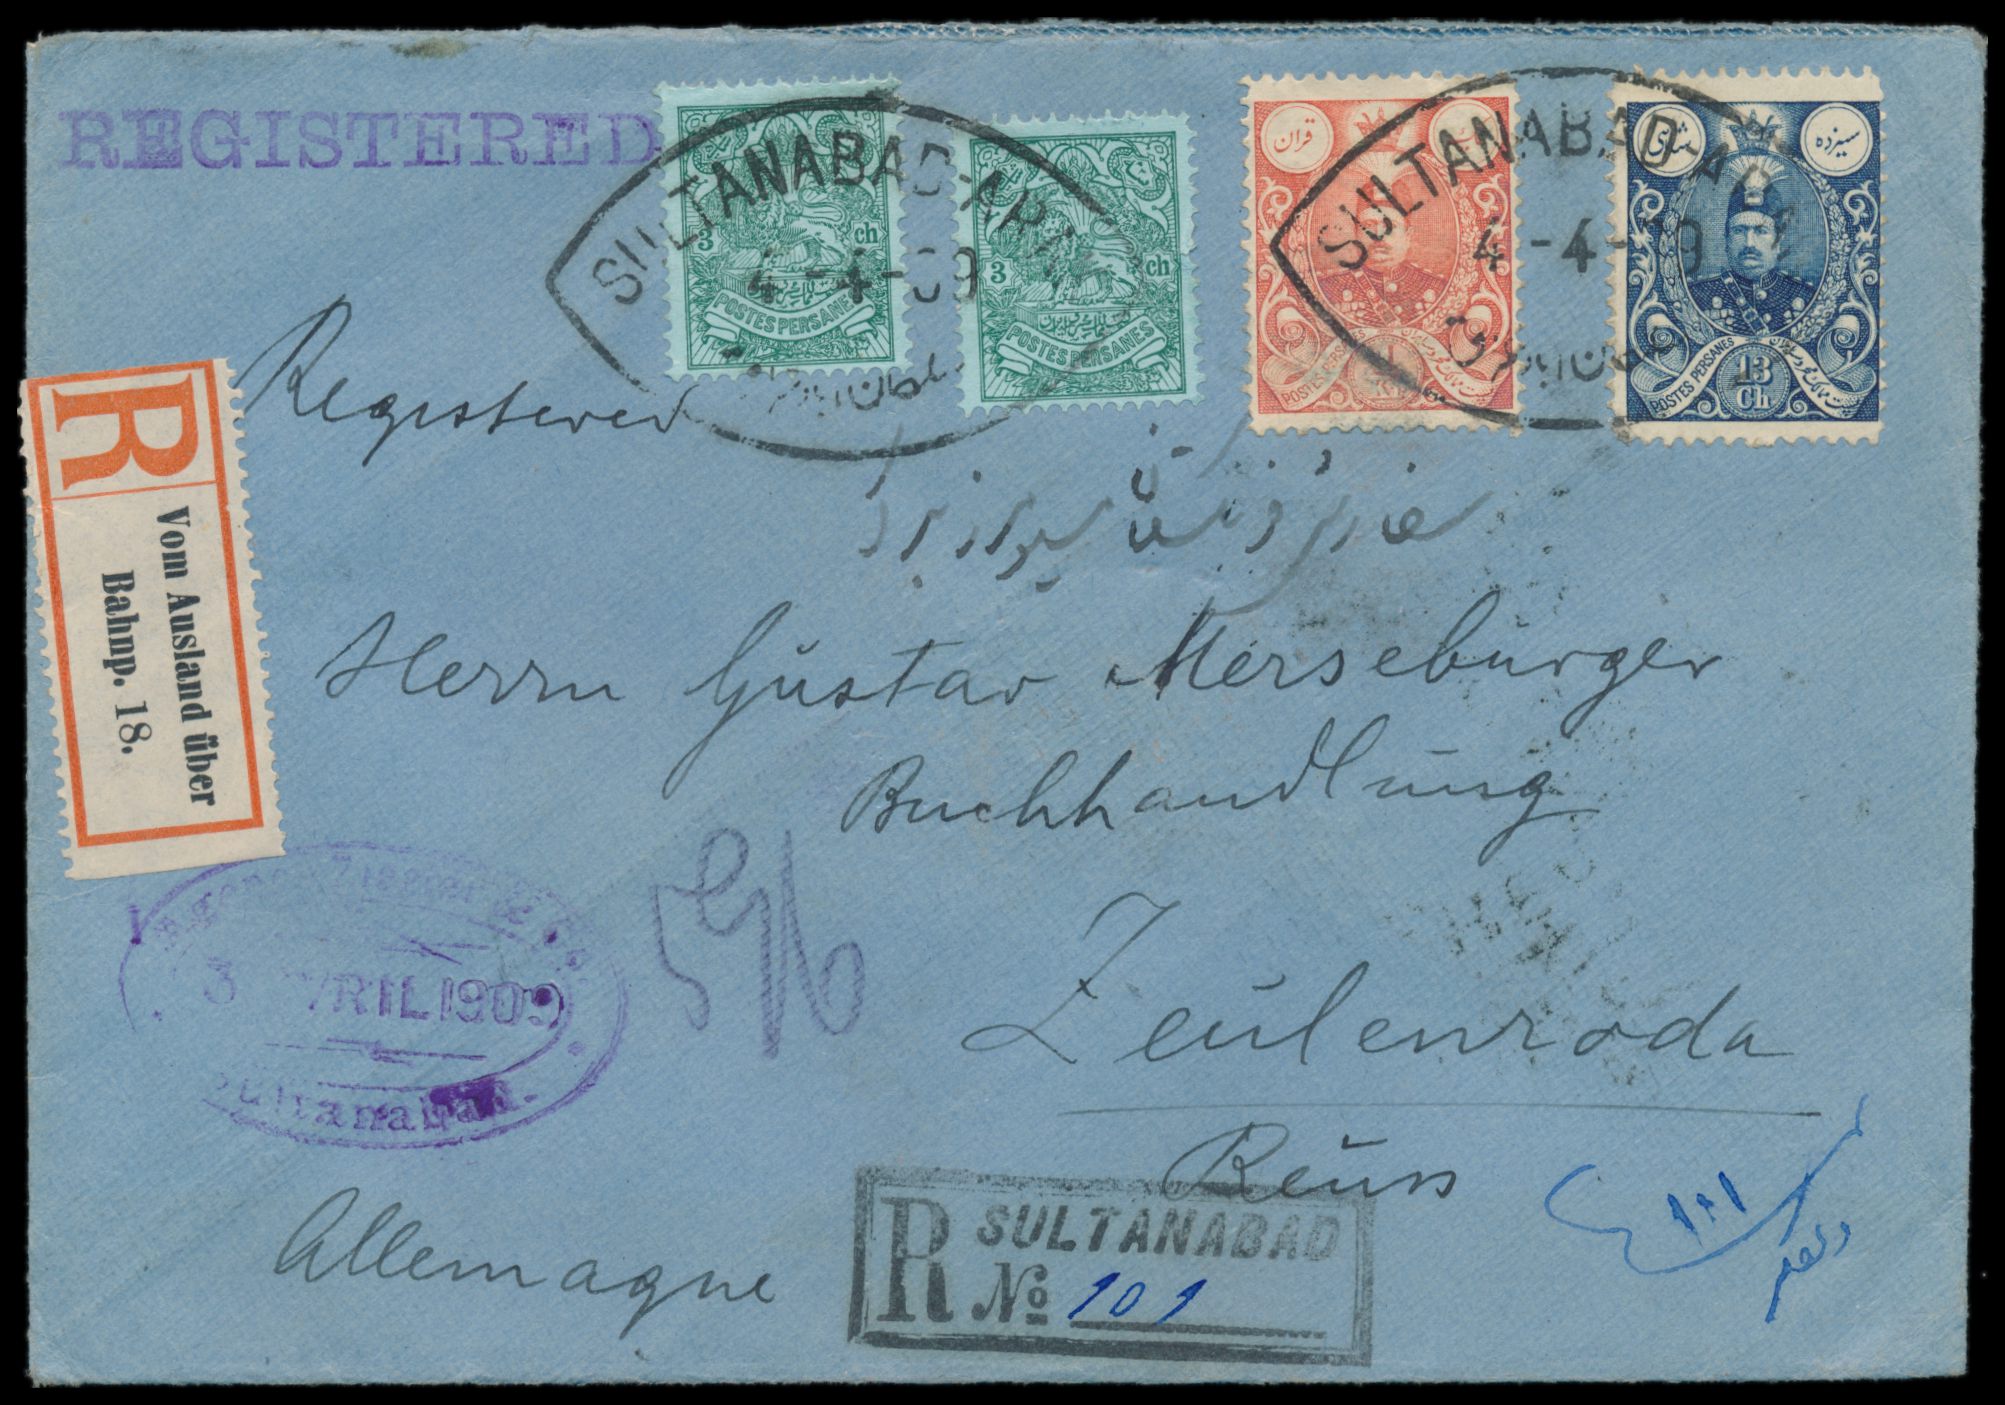 REGISTERED
SULTANABAD-ARAK
4-4-09
3 ch
POSTES PERSANES
3 ch
POSTES PERSANES
قران
POSTES PERSANES
SULTANABAD-ARAK
4-4-09
شاهی
سیزده
POSTES PERSANES
13
Ch
Registered
R
Vom Ausland über
Bahnp. 18.
Herrn Gustav Merseburger
Buchhandlung
Zeulenroda
Reuss
Allemagne
3 AVRIL 1909
Sultanabad.
R SULTANABAD
No 101
۱۰۱